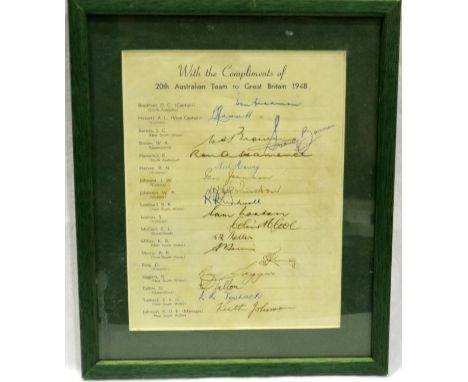 With the Compliments of
20th Australian Team to Great Britain 1948
Bradman, D. G. (Captain)
(South Australia)
Don Bradman
Hassett, A. L. (Vice Captain)
(Victoria)
Hassett
Barnes, S. G.
(New South Wales)
Barnes
Brown, W. A.
(Queensland)
W A Brown
Hamence, R.
(South Australia)
Ron A Hamence
Harvey, R. N.
(Victoria)
Neil Harvey
Johnson, I. W.
(Victoria)
Ian Johnson
Johnston, W. A.
(Victoria)
W A Johnston
Lindwall, R. R.
(New South Wales)
R R Lindwall
Loxton, S.
(Victoria)
Sam Loxton
McCool, C. L.
(Queensland)
Colin McCool
Miller, K. R.
(New South Wales)
K R Miller
Morris, A. R.
(New South Wales)
A Morris
Ring, D.
(Victoria)
D Ring
Saggers, R.
(New South Wales)
Ron Saggers
Tallon, D.
(Queensland)
D Tallon
Toshack, E. R. H.
(New South Wales)
E. R. Toshack
Johnson, K. O. E. (Manager)
(New South Wales)
Keith Johnson